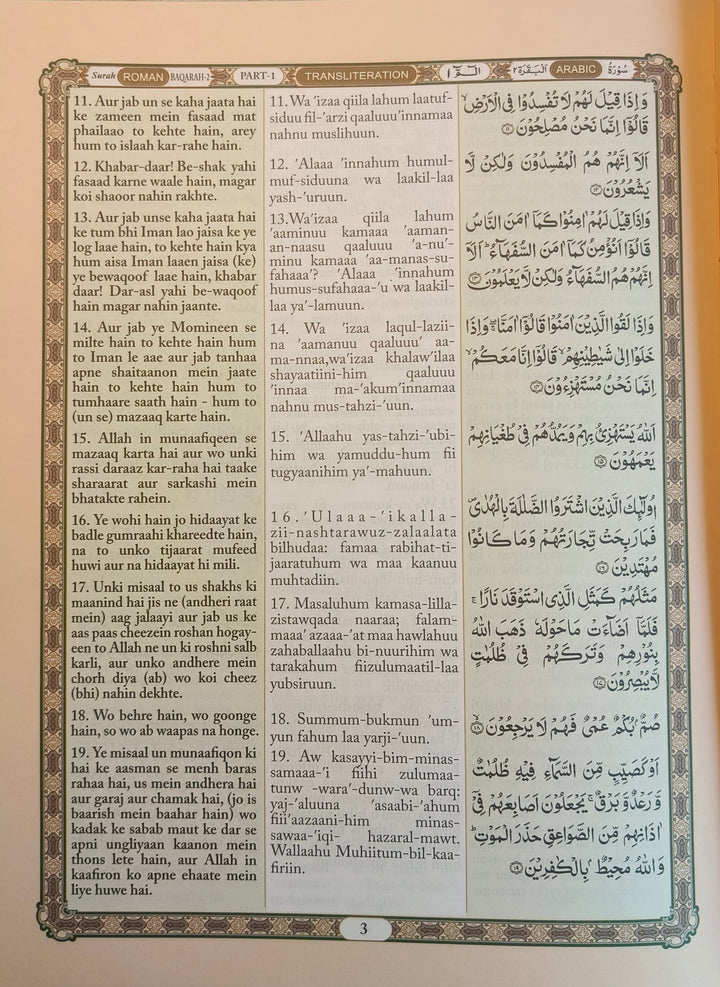 Surah ROMAN BAQARAH-2 PART-1 TRANSLITERATION الٓمّٓ ١ اَلْبَقَرَة ٢ ARABIC سُوْرَةُ
11. Aur jab un se kaha jaata hai
ke zameen mein fasaad mat
phailaao to kehte hain, arey
hum to islaah kar-rahe hain.
12. Khabar-daar! Be-shak yahi
fasaad karne waale hain, magar
koi shaoor nahin rakhte.
13. Aur jab unse kaha jaata hai
ke tum bhi Iman lao jaisa ke ye
log laae hain, to kehte hain kya
hum aisa Iman laaen jaisa (ke)
ye bewaqoof laae hain, khabar
daar! Dar-asl yahi be-waqoof
hain magar nahin jaante.
14. Aur jab ye Momineen se
milte hain to kehte hain hum
to Iman le aae aur jab tanhaa
apne shaitaanon mein jaate
hain to kehte hain hum to
tumhaare saath hain - hum to
(un se) mazaaq karte hain.
15. Allah in munaafiqeen se
mazaaq karta hai aur wo unki
rassi daraaz kar-raha hai taake
sharaarat aur sarkashi mein
bhatakte rahein.
16. Ye wohi hain jo hidaayat ke
badle gumraahi khareedte hain,
na to unko tijaarat mufeed
huwi aur na hidaayat hi mili.
17. Unki misaal to us shakhs ki
maanind hai jis ne (andheri raat
mein) aag jalaayi aur jab us ke
aas paas cheezein roshan hogay-
een to Allah ne un ki roshni salb
karli, aur unko andhere mein
chorh diya (ab) wo koi cheez
(bhi) nahin dekhte.
18. Wo behre hain, wo goonge
hain, so wo ab waapas na honge.
19. Ye misaal un munaafiqon ki
hai ke aasman se menh baras
rahaa hai, us mein andhera hai
aur garaj aur chamak hai, (jo is
baarish mein baahar hain) wo
kadak ke sabab maut ke dar se
apni ungliyaan kaanon mein
thons lete hain, aur Allah in
kaafiron ko apne ehaate mein
liye huwe hai.
11.Wa 'izaa qiila lahum laatuf-
siduu fil-'arzi qaaluuu'innamaa
nahnu muslihuun.
12. 'Alaaa 'innahum humul-
muf-siduuna wa laakil-laa
yash-'uruun.
13.Wa'izaa qiila lahum
'aaminuu kamaaa 'aaman-
an-naasu qaaluuu 'a-nu'-
minu kamaaa 'aa-manas-su-
fahaaa'? 'Alaaa 'innahum
humus-sufahaaa-'u wa laakil-
laa ya'-lamuun.
14. Wa 'izaa laqul-lazii-
na 'aamanuu qaaluuu' aa-
ma-nnaa,wa'izaa khalaw'ilaa
shayaatiini-him qaaluuu
'innaa ma-'akum'innamaa
nahnu mus-tahzi-'uun.
15. 'Allaahu yas-tahzi-'ubi-
him wa yamuddu-hum fii
tugyaanihim ya'-mahuun.
16.'Ulaaa-'ikalla-
zii-nashtarawuz-zalaalata
bilhudaa: famaa rabihat-ti-
jaaratuhum wa maa kaanuu
muhtadiin.
17. Masaluhum kamasa-lilla-
zistawqada naaraa; falam-
maaa' azaaa-'at maa hawlahuu
zahaballaahu bi-nuurihim wa
tarakahum fiizulumaatil-laa
yubsiruun.
18. Summum-bukmun 'um-
yun fahum laa yarji-'uun.
19. Aw kasayyi-bim-minas-
samaaa-'i fiihi zulumaa-
tunw -wara'-dunw-wa barq:
yaj-'aluuna 'asaabi-'ahum
fiii'aazaani-him minas-
sawaa-'iqi- hazaral-mawt.
Wallaahu Muhiitum-bil-kaa-
firiin.
وَاِذَا قِيْلَ لَهُمْ لَا تُفْسِدُوْا فِى الْاَرْضِۙ
قَالُوْٓا اِنَّمَا نَحْنُ مُصْلِحُوْنَ ١١
اَلَآ اِنَّهُمْ هُمُ الْمُفْسِدُوْنَ وَلٰكِنْ لَّا
يَشْعُرُوْنَ ١٢
وَاِذَا قِيْلَ لَهُمْ اٰمِنُوْا كَمَآ اٰمَنَ النَّاسُ
قَالُوْٓا اَنُؤْمِنُ كَمَآ اٰمَنَ السُّفَهَآءُ ؕ اَلَآ
اِنَّهُمْ هُمُ السُّفَهَآءُ وَلٰكِنْ لَّا يَعْلَمُوْنَ ١٣
وَاِذَا لَقُوا الَّذِيْنَ اٰمَنُوْا قَالُوْٓا اٰمَنَّا ۖۚ وَاِذَا
خَلَوْا اِلٰى شَيٰطِيْنِهِمْ ۙ قَالُوْٓا اِنَّا مَعَكُمْ ۙ
اِنَّمَا نَحْنُ مُسْتَهْزِءُوْنَ ١٤
اَللّٰهُ يَسْتَهْزِئُ بِهِمْ وَيَمُدُّهُمْ فِىْ طُغْيَانِهِمْ
يَعْمَهُوْنَ ١٥
اُولٰٓئِكَ الَّذِيْنَ اشْتَرَوُا الضَّلٰلَةَ بِالْهُدٰى ۪
فَمَا رَبِحَتْ تِّجَارَتُهُمْ وَمَا كَانُوْا
مُهْتَدِيْنَ ١٦
مَثَلُهُمْ كَمَثَلِ الَّذِى اسْتَوْقَدَ نَارًا ۚ
فَلَمَّآ اَضَآءَتْ مَا حَوْلَهٗ ذَهَبَ اللّٰهُ
بِنُوْرِهِمْ وَتَرَكَهُمْ فِىْ ظُلُمٰتٍ
لَّا يُبْصِرُوْنَ ١٧
صُمٌّۢ بُكْمٌ عُمْىٌ فَهُمْ لَا يَرْجِعُوْنَ ۙ ١٨
اَوْ كَصَيِّبٍ مِّنَ السَّمَآءِ فِيْهِ ظُلُمٰتٌ
وَّرَعْدٌ وَّبَرْقٌ ۚ يَجْعَلُوْنَ اَصَابِعَهُمْ فِىْٓ
اٰذَانِهِمْ مِّنَ الصَّوَاعِقِ حَذَرَ الْمَوْتِ ؕ
وَاللّٰهُ مُحِيْطٌۢ بِالْكٰفِرِيْنَ ١٩
3